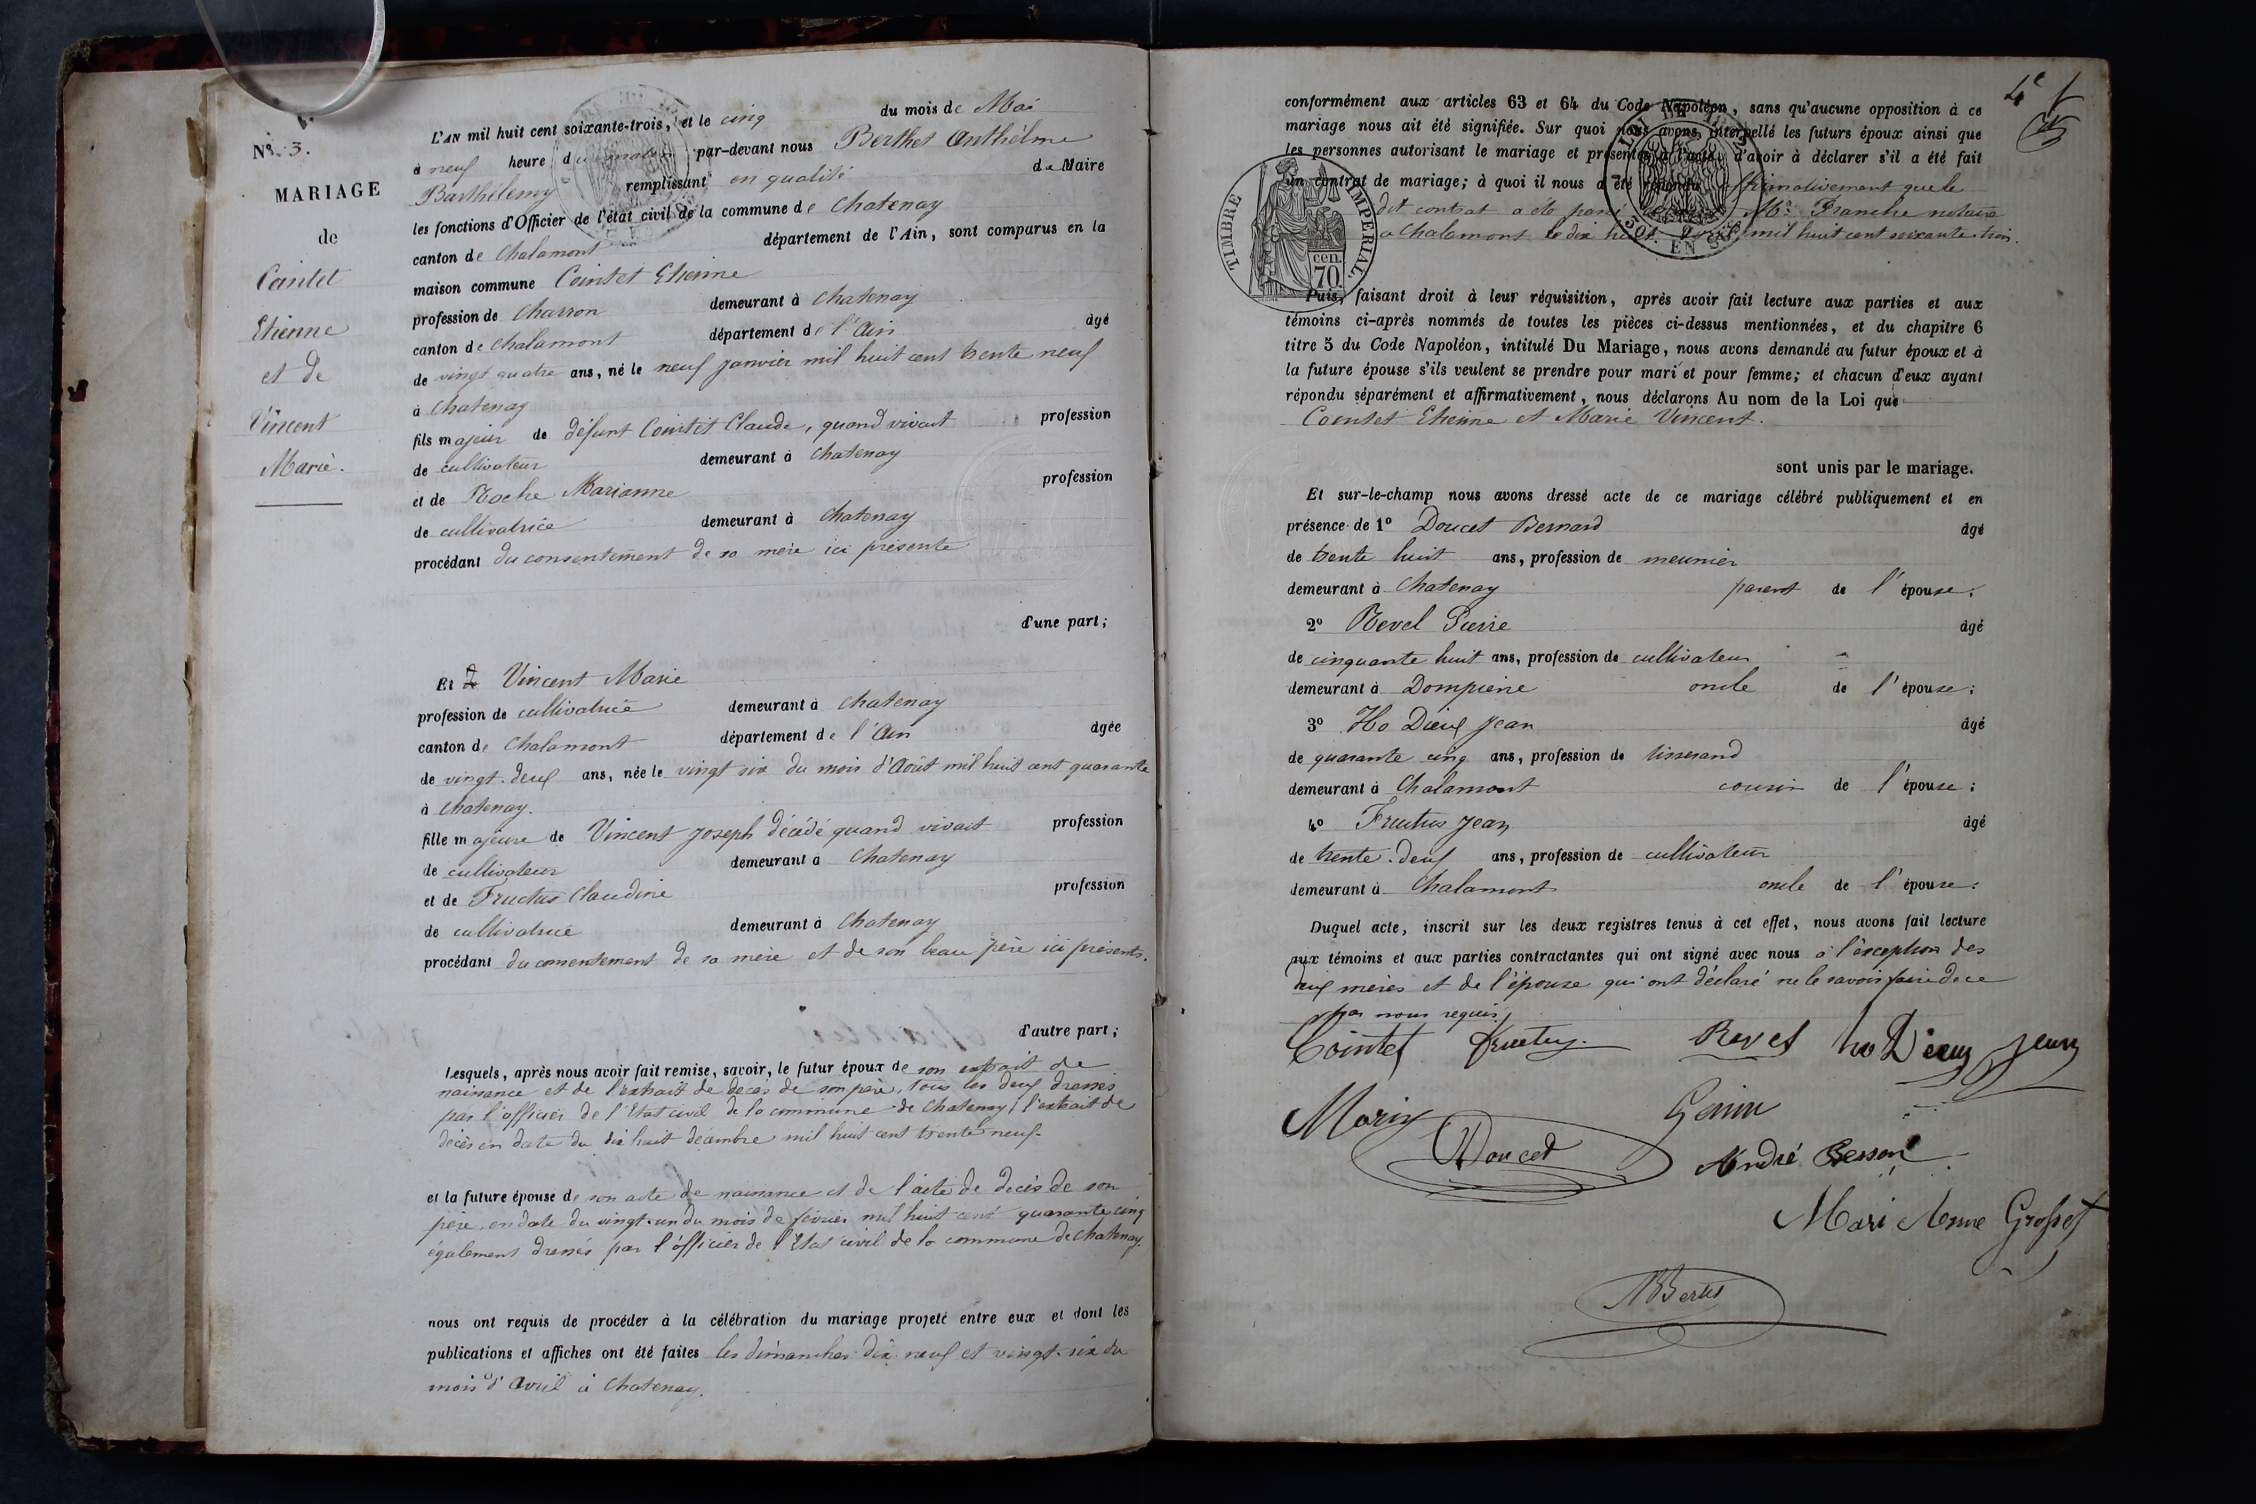 N° 3.
MARIAGE
de
Cointet
Etienne
et de
Vincent
Marie.
L'AN mil huit cent soixante-trois, et le cinq du mois de Mai
à neuf heure du matin par-devant nous Berthet Anthelme
Barthélemy remplissant en qualité de Maire
les fonctions d'Officier de l'état civil de la commune de Chatenay
canton de Chalamont département de l'Ain, sont comparus en la
maison commune Cointet Etienne
profession de Charron demeurant à Chatenay
canton de Chalamont département de l'Ain âgé
de vingt quatre ans, né le neuf Janvier mil huit cent trente neuf
à Chatenay
fils majeur de défunt Cointet Claude, quand vivait profession
de cultivateur demeurant à Chatenay
et de Roche Marianne profession
de cultivatrice demeurant à Chatenay
procédant du consentement de sa mère ici présente
d'une part;
Et Vincent Marie
profession de cultivatrice demeurant à Chatenay
canton de Chalamont département de l'Ain âgée
de vingt-deux ans, née le vingt six du mois d'Août mil huit cent quarante
à Chatenay.
fille majeure de Vincent Joseph décédé quand vivait profession
de cultivateur demeurant à Chatenay
et de Fructus Claudine profession
de cultivatrice demeurant à Chatenay
procédant du consentement de sa mère et de son beau père ici présents.
d'autre part;
Lesquels, après nous avoir fait remise, savoir, le futur époux de son extrait de
naissance et de l'extrait de décès de son père, tous les deux dressés
par l'officier de l'Etat civil de la commune de Chatenay; l'extrait de
décès en date du dix huit décembre mil huit cent trente neuf.
et la future épouse de son acte de naissance et de l'acte de décès de son
père, en date du vingt-un du mois de février mil huit cent quarante cinq
également dressés par l'officier de l'Etat civil de la commune de Chatenay.
nous ont requis de procéder à la célébration du mariage projeté entre eux et dont les
publications et affiches ont été faites les dimanches dix neuf et vingt-six du
mois d'Avril à Chatenay.
4e
conformément aux articles 63 et 64 du Code Napoléon, sans qu'aucune opposition à ce
mariage nous ait été signifiée. Sur quoi nous avons interpellé les futurs époux ainsi que
les personnes autorisant le mariage et présentes à l'acte, d'avoir à déclarer s'il a été fait
un contrat de mariage; à quoi il nous a été répondu affirmativement que le
dit contrat a été passé Me Franche notaire
à Chalamont le dix huit Avril mil huit cent soixante-trois.
TIMBRE IMPERIAL
cen.
70.
50c. EN SUS
Puis, faisant droit à leur réquisition, après avoir fait lecture aux parties et aux
témoins ci-après nommés de toutes les pièces ci-dessus mentionnées, et du chapitre 6
titre 5 du Code Napoléon, intitulé Du Mariage, nous avons demandé au futur époux et à
la future épouse s'ils veulent se prendre pour mari et pour femme; et chacun d'eux ayant
répondu séparément et affirmativement, nous déclarons Au nom de la Loi que
Cointet Etienne et Marie Vincent.
sont unis par le mariage.
Et sur-le-champ nous avons dressé acte de ce mariage célébré publiquement et en
présence de 1° Doucet Bernard âgé
de trente huit ans, profession de meunier
demeurant à Chatenay parent de l'épouse;
2° Revel Pierre âgé
de cinquante huit ans, profession de cultivateur
demeurant à Dompierre oncle de l'épouse;
3° Ho Dieux Jean âgé
de quarante cinq ans, profession de tisserand
demeurant à Chalamont cousin de l'épouse;
4° Fructus Jean âgé
de trente-deux ans, profession de cultivateur
demeurant à Chalamont oncle de l'épouse.
Duquel acte, inscrit sur les deux registres tenus à cet effet, nous avons fait lecture
aux témoins et aux parties contractantes qui ont signé avec nous à l'exception des
deux mères et de l'épouse qui ont déclaré ne le savoir faire de ce
par nous requis.
Cointet Fructus. Revel ho Dieux Jean
Morin Genin
Doucet André Besson
Mari Anne Grosset